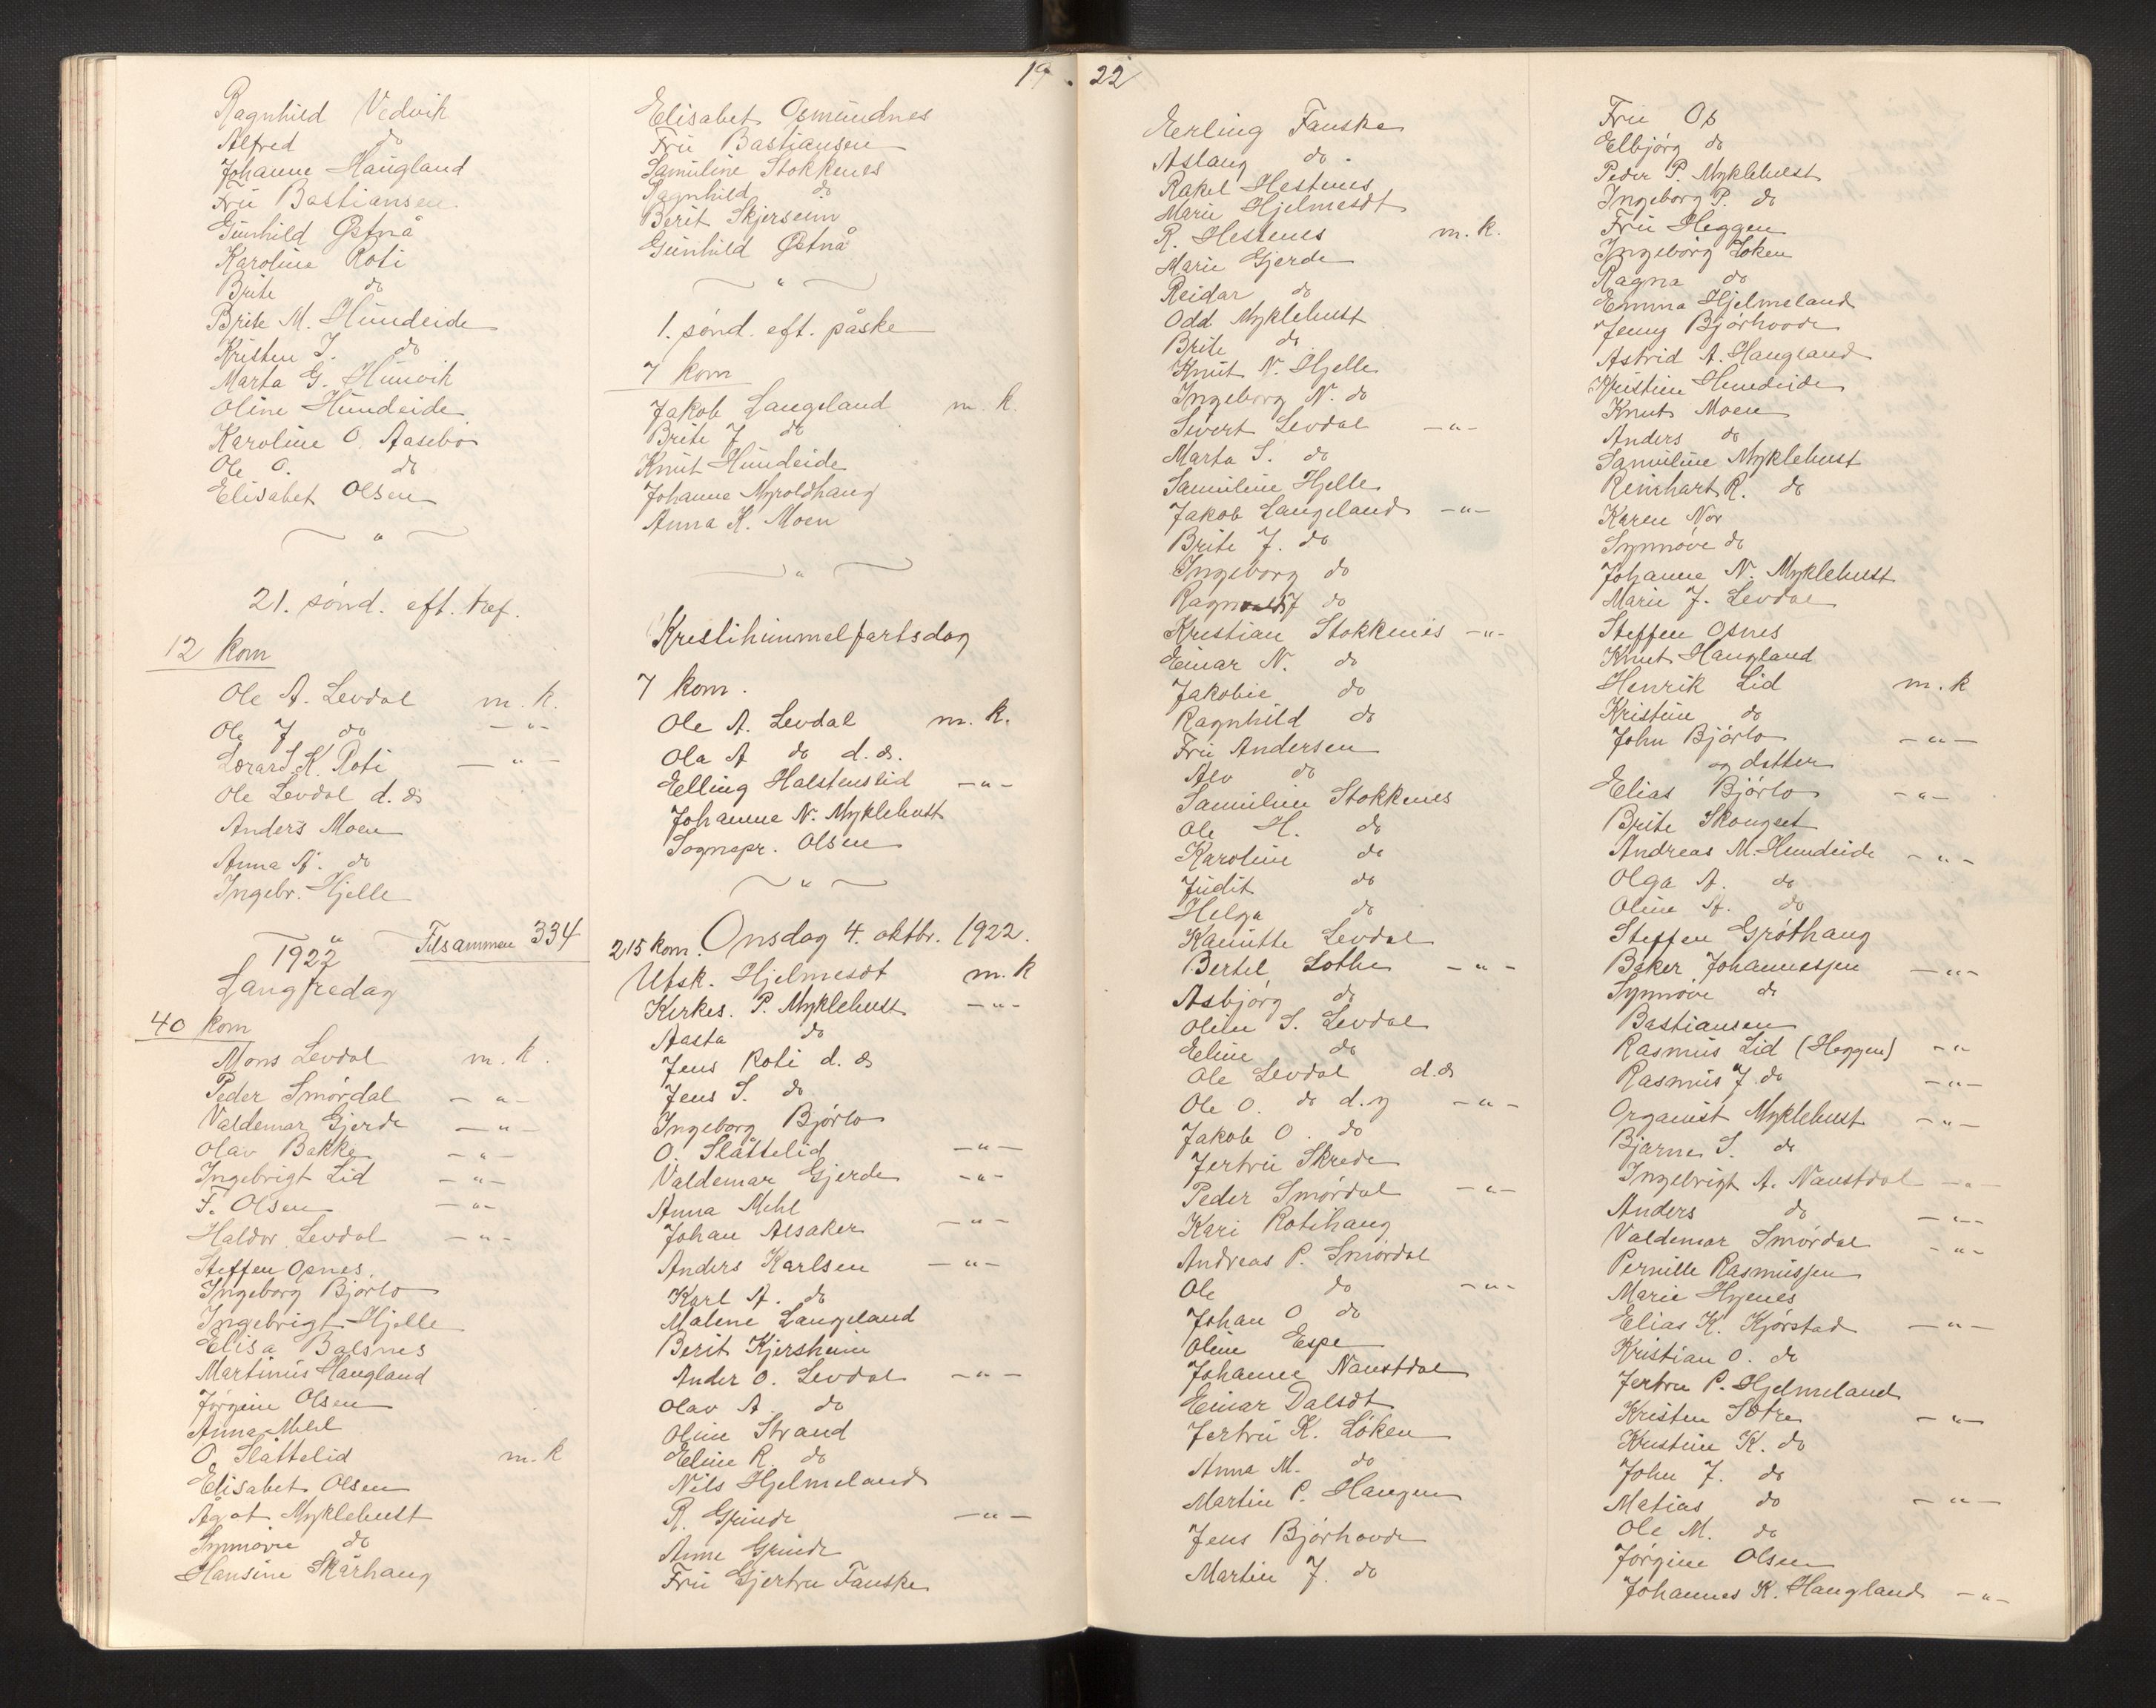 19 . 22
Ragnhild Vedvik
Alfred do
Johanne Haugland
Fru Bastiansen
Gunhild Østnå
Karoline Roti
Brite do
Brite M. Hundeide
Kristen J. do
Marta G. Hunvik
Oline Hundeide
Karoline O. Aasebö
Ole O. do
Elisabet Olsen
— " —
21. sønd. eft. tref.
12 kom
Ole A. Levdal m. k.
Ole J do — " —
Lærar S. K. Roti — " —
Ole Levdal d. æ
Anders Moen
Anna A. do
Ingebr. Hjelle
— " — Tilsammen 334
1922
Langfredag
40 kom
Mons Levdal m. k.
Peder Smørdal — " —
Valdemar Gjerde — " —
Olav Bakke — " —
Ingebrigt Lid — " —
F. Olsen — " —
Haldor Levdal — " —
Steffen Opnes
Ingeborg Bjørlo
Ingebrigt Hjelle
Elisa Balsnes
Martinus Haugland
Jørgine Olsen
Anna Mehl
O. Slåttelid m. k
Elisabet Olsen
Ågot Myklebust
Synnøve do
Hansine Skårhaug
Elisabet Osmundnes
Fru Bastiansen
Samuline Stokkenes
Ragnhild do
Berit Skjerseim
Gunhild Østnå
— " —
1. sønd. eft. påske
7 kom
Jakob Langeland m. k.
Brite J do
Knut Hundeide
Johanne Myroldhaug
Anna K. Moen
— " —
Kristihimmelfartsdag
7 kom.
Ole A. Levdal m. k.
Ola A do d. æ.
Elling Halstenslid — " —
Johanne N. Myklebust
Sognepr. Olsen
— " —
215 kom. Onsdag 4. oktbr. 1922.
Utsk. Hjelmesdt m. k
Kirkes. P. Myklebust — " —
Aasta do
Jens Roti d. æ
Jens S. do
Ingeborg Bjørlo
O. Slåttelid — " —
Valdemar Gjerde — " —
Anna Mehl
Johan Alsaker — " —
Anders Karlsen — " —
Karl A. do
Malene Langeland
Berit Kjersheim
Ander O. Levdal — " —
Olav A. do
Oline Strand
Eline R. do
Nils Hjelmeland
R. Grinde — " —
Anne Grinde
Fru Gjertru Fauske
Erling Fauske
Aslaug do
Rakel Hestenes
Marie Hjelmesdt
R. Hestenes m. k.
Marie Gjerde
Reidar do
Odd Myklebust
Brite do
Knut N. Hjelle
Ingeborg N. do
Sivert Levdal — " —
Marta S. do
Samuline Hjelle
Jakob Langeland — " —
Brite J. do
Ingeborg do
Ragnvald J do
Kristian Stokkenes — " —
Einar N. do
Jakobie do
Ragnhild do
Fru Andersen
Alv do
Samuline Stokkenes
Ole H. do
Karoline do
Judit do
Helga do
Kanutte Levdal
Bertel Lothe — " —
Asbjørg do
Oline S. Levdal
Eline do
Ole Levdal d. æ
Ole O. do d. y — " —
Jakob O. do
Jertru Skrede
Peder Smørdal — " —
Kari Rotihaug
Andreas P. Smørdal
Ole do — " —
Johan O do
Oline Espe
Johanne Naustdal
Einar Dalsdt
Jertru K. Løken
Anna M. do
Martin P. Haugen
Jens Bjørhovde
Martin J. do
Fru Os
Elbjørg do
Peder P. Myklebust
Ingeborg P. do
Fru Heggen
Ingebörg Løken
Ragna do
Emma Hjelmeland
Jenny Bjørhovde
Astrid A. Haugland
Kristine Hundeide
Knut Moen
Anders do
Samuline Myklebust
Reinhart R. do
Karen Nor
Synnøve do
Johanne N. Myklebust
Marie J. Levdal
Steffen Opnes
Knut Haugland
Henrik Lid m. k
Kristine do
John Bjørlo — " —
og dotter
Elias Bjørlo — " —
Brite Skaugset
Andreas M. Hundeide — " —
Olga A. do
Oline A. do
Steffen Grøthaug
Baker Johannessen — " —
Synnøve do
Bastiansen
Rasmus Lid (Heggen) — " —
Rasmus J. do — " —
Organist Myklebust — " —
Bjarne S. do
Ingebrigt A. Naustdal — " —
Anders do — " —
Valdemar Smørdal — " —
Pernille Rasmussen
Marie Hyenes
Elias K. Kjørstad — " —
Kristian O. do
Jertru P. Hjelmeland
Kristen Sætre — " —
Kristine K. do
John J. do
Matias do — " —
Ole M. do
Jørgine Olsen
Johannes K. Haugland — " —